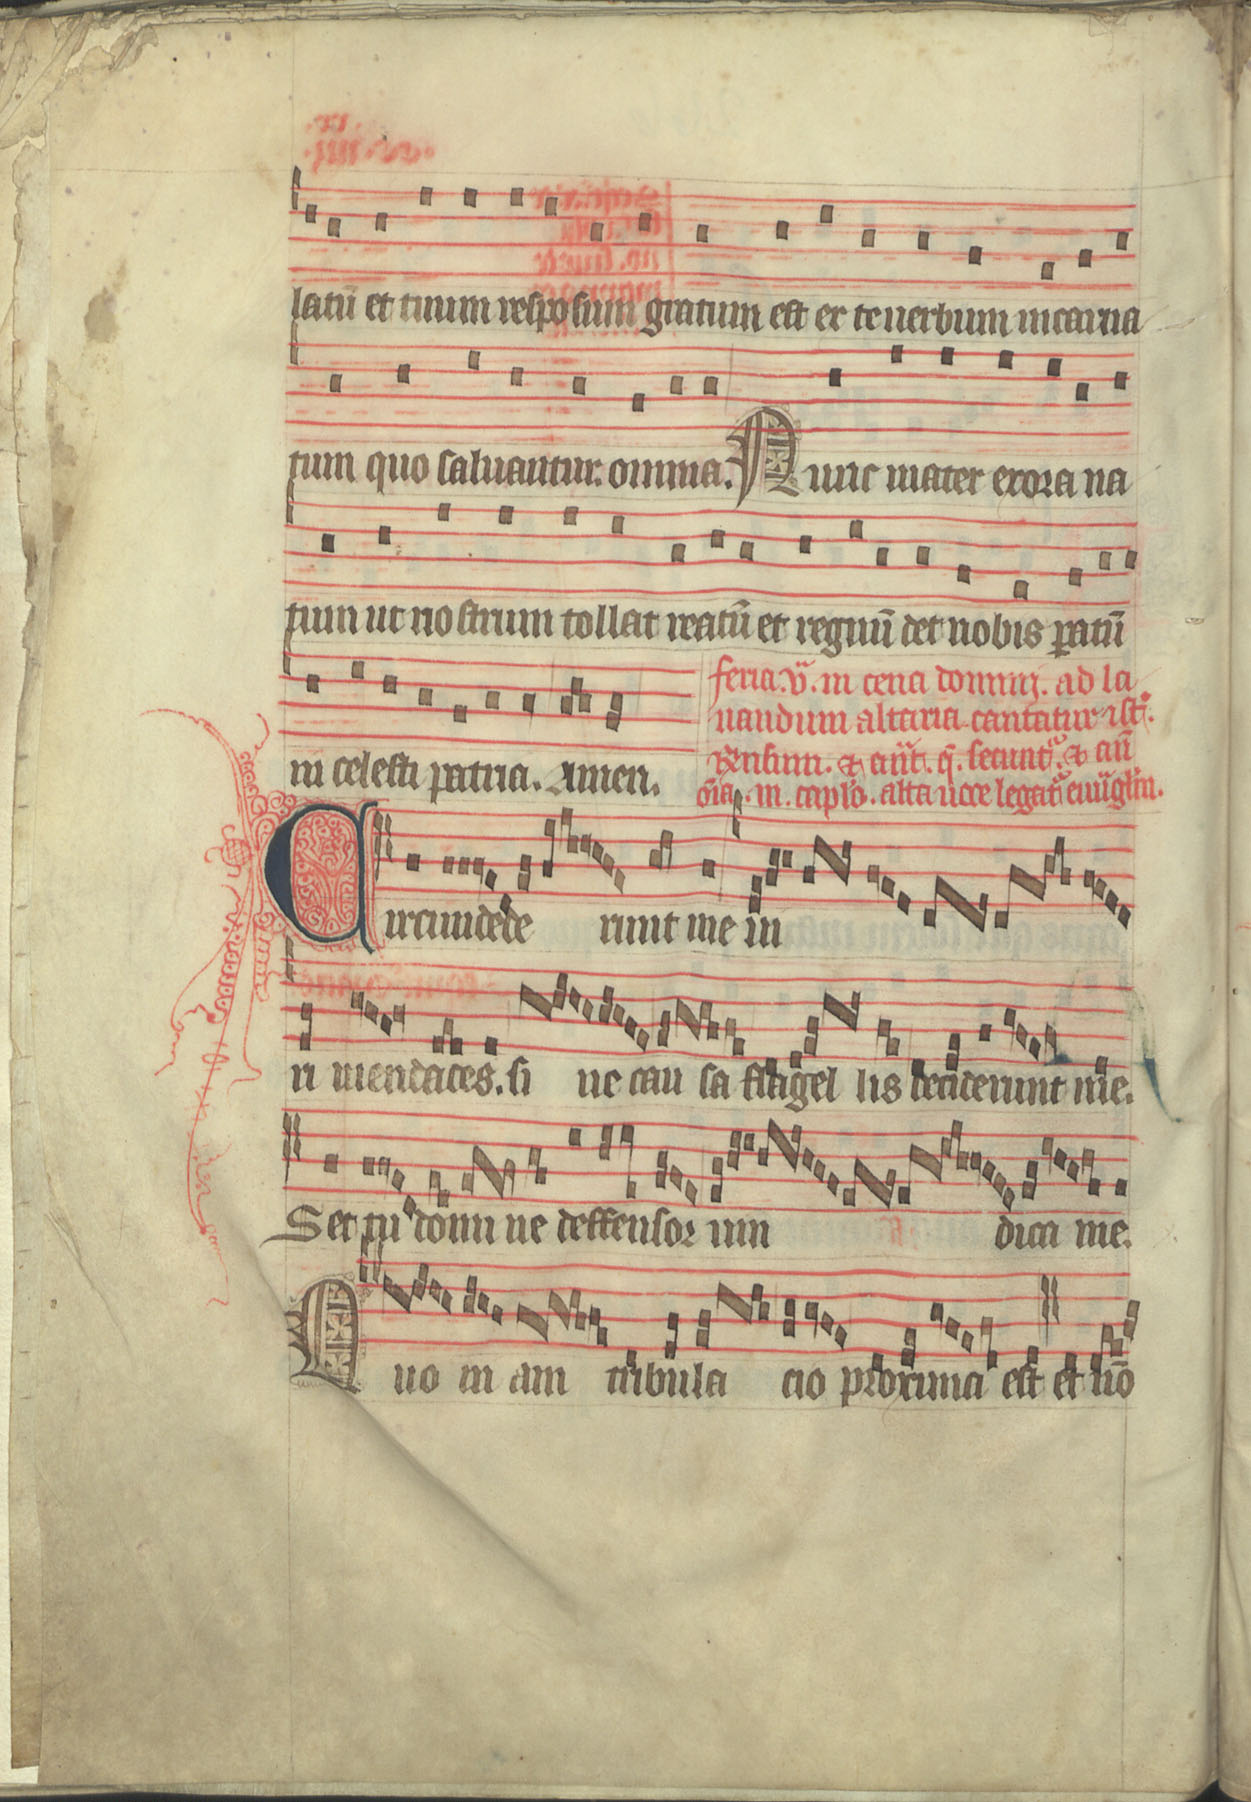 latū et tuum responsum gratum est ex te uerbum incarna
tum quo saluantur. omnia. Nunc mater exora na
tum ut nostrum tollat reatū et regnū det nobis paratū
in celesti patria. Amen.
feria. v͛. in cena domini. ad la
uandum altaria cantatur ist͛.
Rnsum. & añt. q̄. secunt͛. & añ
in. caplo. alta uoce legat͛ euūglm.
Circumdede runt me in
ri mendaces. si ne cau sa flagel lis deciderunt me.
Set tu domi ne deffensor uin dica me.
Quo in am tribula cio proxima est et nō